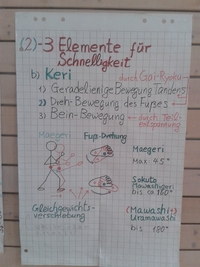 (2)-3 Elemente für
Schnelligkeit
b) Keri
durch Gai-Ryoku
1) Geradelienige Bewegung Tandens
2) Dreh-Bewegung des Fußes
3) Bein-Bewegung
durch Teil-
entspannung
Maegeri
Fuß-Drehung
Maegeri
Max 45°
Sokuto
Mawashigeri
bis ca 160°
Gleichgewichts-
verschiebung
(Mawashi+)
Uramawashi
bis 180°